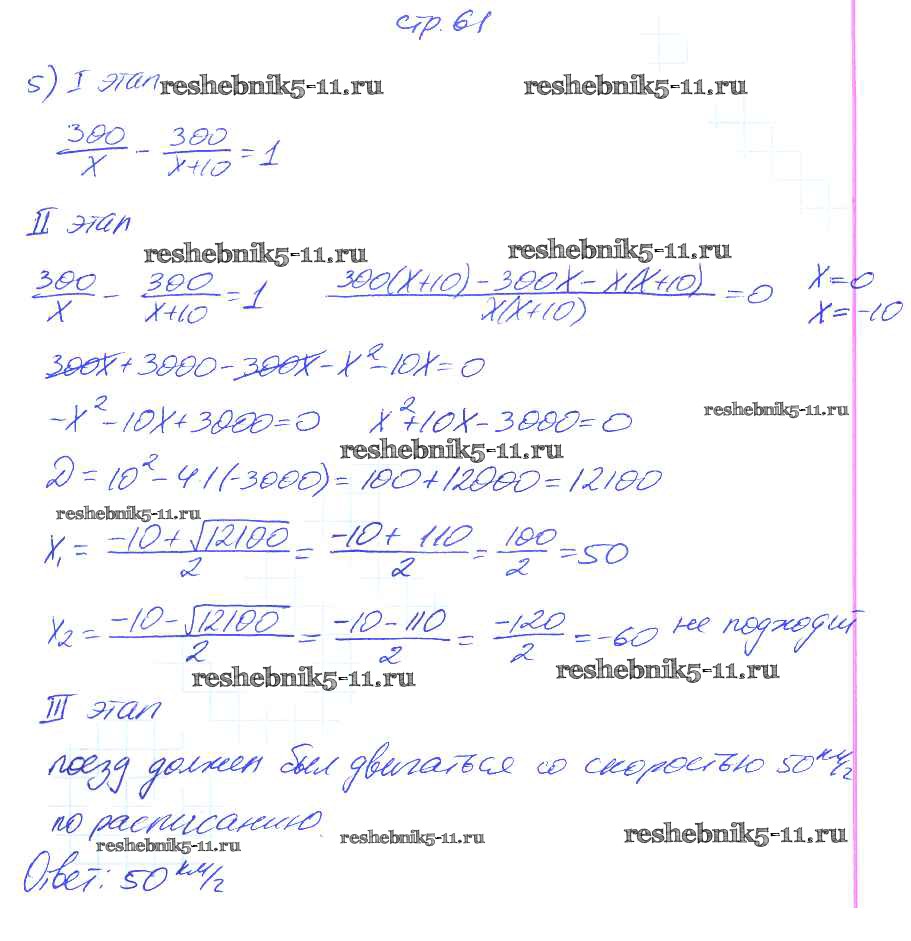 стр. 61
5) I этап reshebnik5-11.ru reshebnik5-11.ru
300/x - 300/(x+10) = 1
II этап
reshebnik5-11.ru reshebnik5-11.ru
300/x - 300/(x+10) = 1 (300(x+10) - 300x - x(x+10))/(x(x+10)) = 0 x=0
x=-10
300x + 3000 - 300x - x² - 10x = 0
reshebnik5-11.ru
-x² - 10x + 3000 = 0 x² + 10x - 3000 = 0
reshebnik5-11.ru
D = 10² - 4·1(-3000) = 100 + 12000 = 12100
reshebnik5-11.ru
x₁ = (-10 + √12100)/2 = (-10 + 110)/2 = 100/2 = 50
x₂ = (-10 - √12100)/2 = (-10 - 110)/2 = -120/2 = -60 не подходит
reshebnik5-11.ru reshebnik5-11.ru
III этап
поезд должен был двигаться со скоростью 50 км/ч
по расписанию.
reshebnik5-11.ru reshebnik5-11.ru reshebnik5-11.ru
Ответ: 50 км/ч